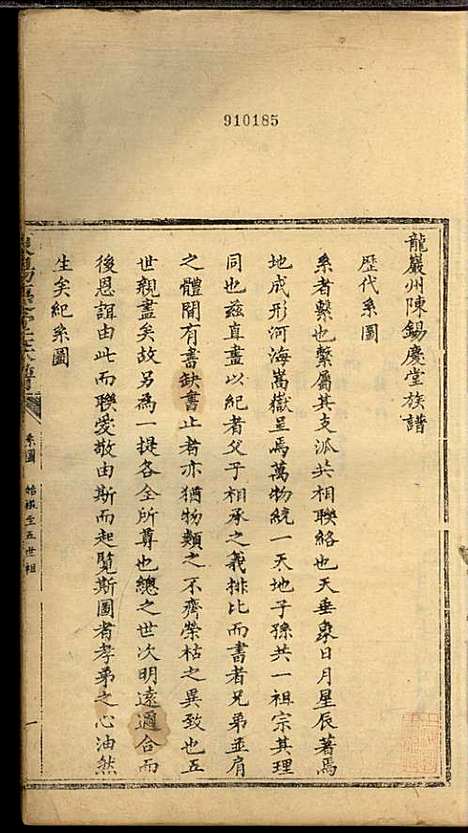 910185
龍巖州陳錫慶堂族譜
歷代系圖
系者繫也繫屬其支派共相聯絡也天垂象日月星辰著焉
地成形河海嵩嶽呈焉萬物統一天地子孫共一祖宗其理
同也茲直畫以紀者父子相承之義排比而書者兄弟並肩
之體間有書缺書止者亦猶物類之不齊榮枯之異致也五
世親盡矣故另為一提各全所尊也總之世次明遠邇合而
後恩誼由此而聯愛敬由斯而起覽斯圖者孝弟之心油然
生矣紀系圖
系圖
始祖至五世祖
一